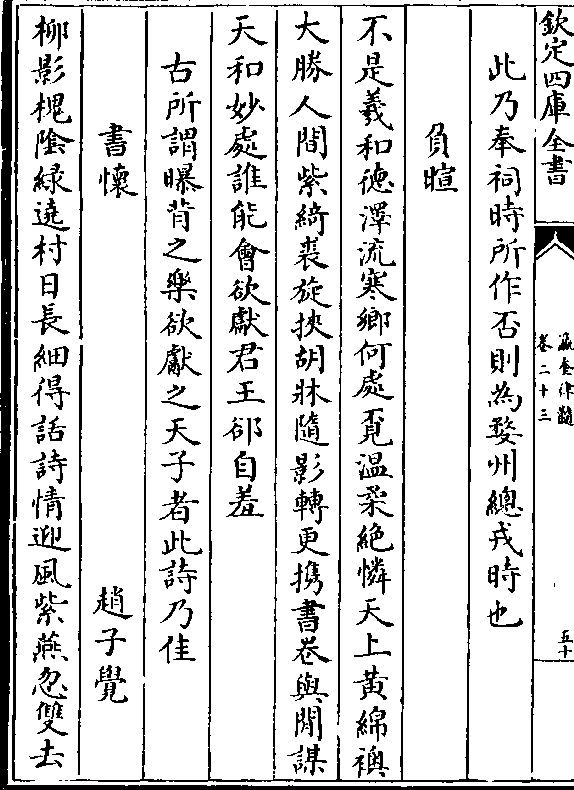 欽定四庫全書
瀛奎律髓
卷二十三
五十
此乃奉祠時所作否則為婺州總戎時也
負暄
不是羲和德澤流寒鄉何處覓温柔絶憐天上黃綿襖
大勝人間紫綺裘旋挾胡牀隨影轉更携書卷與閒謀
天和妙處誰能會欲獻君王郤自羞
古所謂曝背之樂欲獻之天子者此詩乃佳
書懷
趙子覺
柳影槐陰緑遶村日長細得話詩情迎風紫燕忽雙去